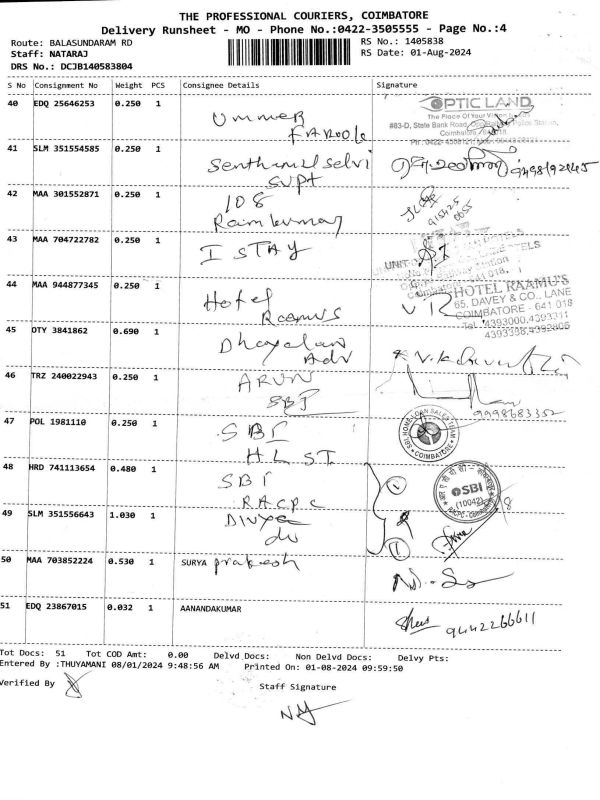 THE PROFESSIONAL COURIERS, COIMBATORE
Delivery Runsheet - MO - Phone No.:0422-3505555 - Page No.:4
Route: BALASUNDARAM RD RS No.: 1405838
Staff: NATARAJ RS Date: 01-Aug-2024
DRS No.: DCJB140583804
S No Consignment No Weight PCS Consignee Details Signature
40 EDQ 25646253 0.250 1 Ummer
FAROOk
OPTIC LAND
The Place Of Your Vision
#83-D, State Bank Road,
Coimbatore
41 SLM 351554585 0.250 1 Senthamil selvi 9498192145
SVPt
42 MAA 301552871 0.250 1 108
Ramkumar
43 MAA 704722782 0.250 1 I STAY
44 MAA 944877345 0.250 1 Hotel
Raamus
HOTEL RAAMU'S
65, DAVEY & CO., LANE
COIMBATORE - 641 018
Tel: 4393000,4393311
45 OTY 3841862 0.690 1 Dhayalan
Adv
46 TRZ 240022943 0.250 1 ARUN
SBI
9998683352
47 POL 1981110 0.250 1 SBI
HLST
SBI HOME LOAN SALES TEAM
COIMBATORE
48 HRD 741113654 0.480 1 SBI
RACPC
SBI
(10042)
49 SLM 351556643 1.030 1 Divya
dv
50 MAA 703852224 0.530 1 SURYA prakash
51 EDQ 23867015 0.032 1 AANANDAKUMAR 9442266611
Tot Docs: 51 Tot COD Amt: 0.00 Delvd Docs: Non Delvd Docs: Delvy Pts:
Entered By :THUYAMANI 08/01/2024 9:48:56 AM Printed On: 01-08-2024 09:59:50
Verified By
Staff Signature